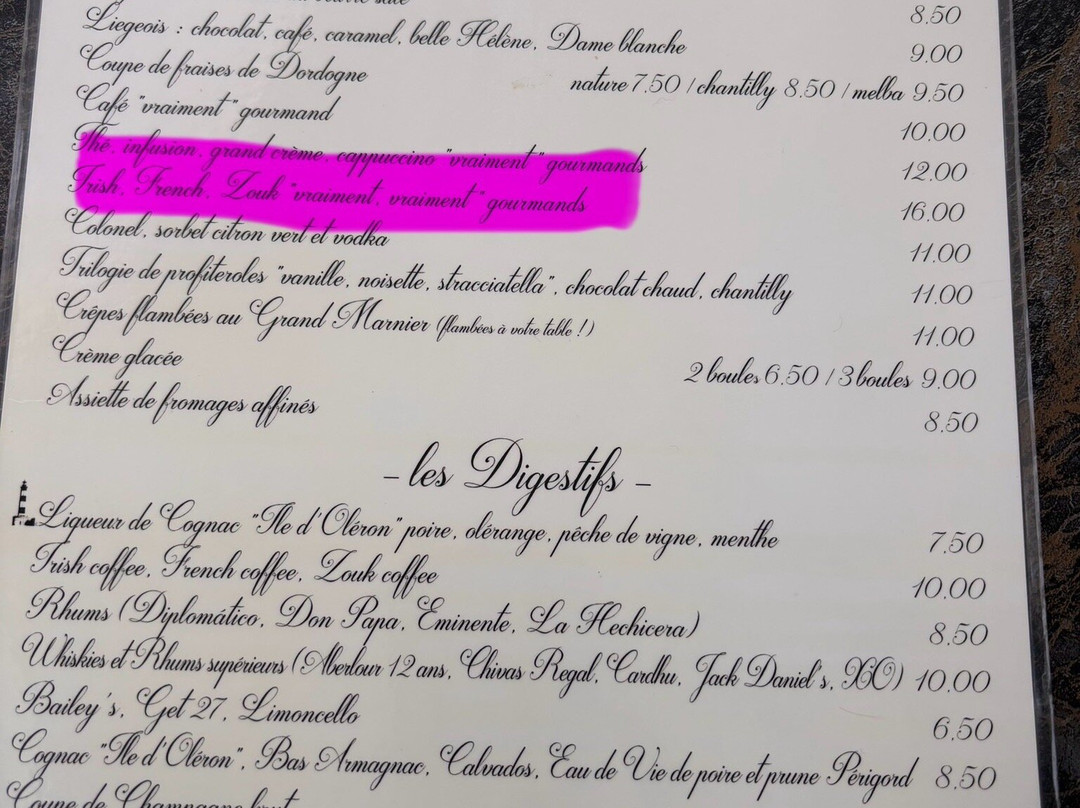 beurre salé 8.50
Liegeois : chocolat, café, caramel, belle Hélène, Dame blanche 9.00
Coupe de fraises de Dordogne nature 7.50 / chantilly 8.50 / melba 9.50
Café "vraiment" gourmand 10.00
Thé, infusion, grand crème, cappuccino "vraiment" gourmands 12.00
Irish, French, Zouk "vraiment, vraiment" gourmands 16.00
Colonel, sorbet citron vert et vodka 11.00
Trilogie de profiteroles "vanille, noisette, stracciatella", chocolat chaud, chantilly 11.00
Crêpes flambées au Grand Marnier (flambées à votre table !) 11.00
Crème glacée 2 boules 6.50 / 3 boules 9.00
Assiette de fromages affinés 8.50
- les Digestifs -
Liqueur de Cognac "Ile d'Oléron" poire, olérange, pêche de vigne, menthe 7.50
Irish coffee, French coffee, Zouk coffee 10.00
Rhums (Diplomático, Don Papa, Eminente, La Hechicera) 8.50
Whiskies et Rhums supérieurs (Aberlour 12 ans, Chivas Regal, Cardhu, Jack Daniel's, XO) 10.00
Bailey's, Get 27, Limoncello 6.50
Cognac "Ile d'Oléron", Bas Armagnac, Calvados, Eau de Vie de poire et prune Périgord 8.50
Coupe de Champagne brut